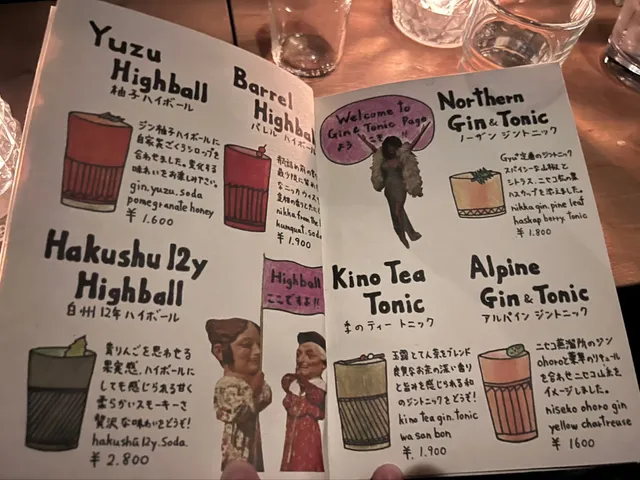 Yuzu
Highball
柚子ハイボール
ジン柚子ハイボールに
自家製ざくろシロップを
合わせました。変化する
味わいをお楽しみ下さい。
gin.yuzu.soda
pomegranate honey
¥1.600
Barrel
Highbal
バレルハイボー
nikka from the
kumquat.soda
¥1.900
Hakushu 12y
Highball
白州12年ハイボール
青りんごを思わせる
果実感。ハイボールに
しても感じられる甘く
柔らかいスモーキーさ
贅沢な味わいをどうぞ!
hakushū 12y.Soda.
¥2.800
Highball
ここですよ!!
Welcome to
Gin & Tonic Page
ようこそ!!
Northern
Gin & Tonic
ノーザン ジントニック
Gyu⁺定番のジントニック
スパイシーな山椒と
シトラス、ニセコ
ハスカップを
nikka gin.pine leaf
haskap berry.tonic
¥1.800
Kino Tea
Tonic
季のティー トニック
玉露とてん茶をブレンド
良質なお茶の深い香り
と旨みを感じられる和
のジントニックをどうぞ!
kino tea gin.tonic
wa san bon
¥.1.900
Alpine
Gin & Tonic
アルパイン ジントニック
ニセコ蒸溜所のジン
ohoroと薬草のリキュール
を合わせニセコ山系を
イメージしました。
niseko ohoro gin
yellow chartreuse
¥1600